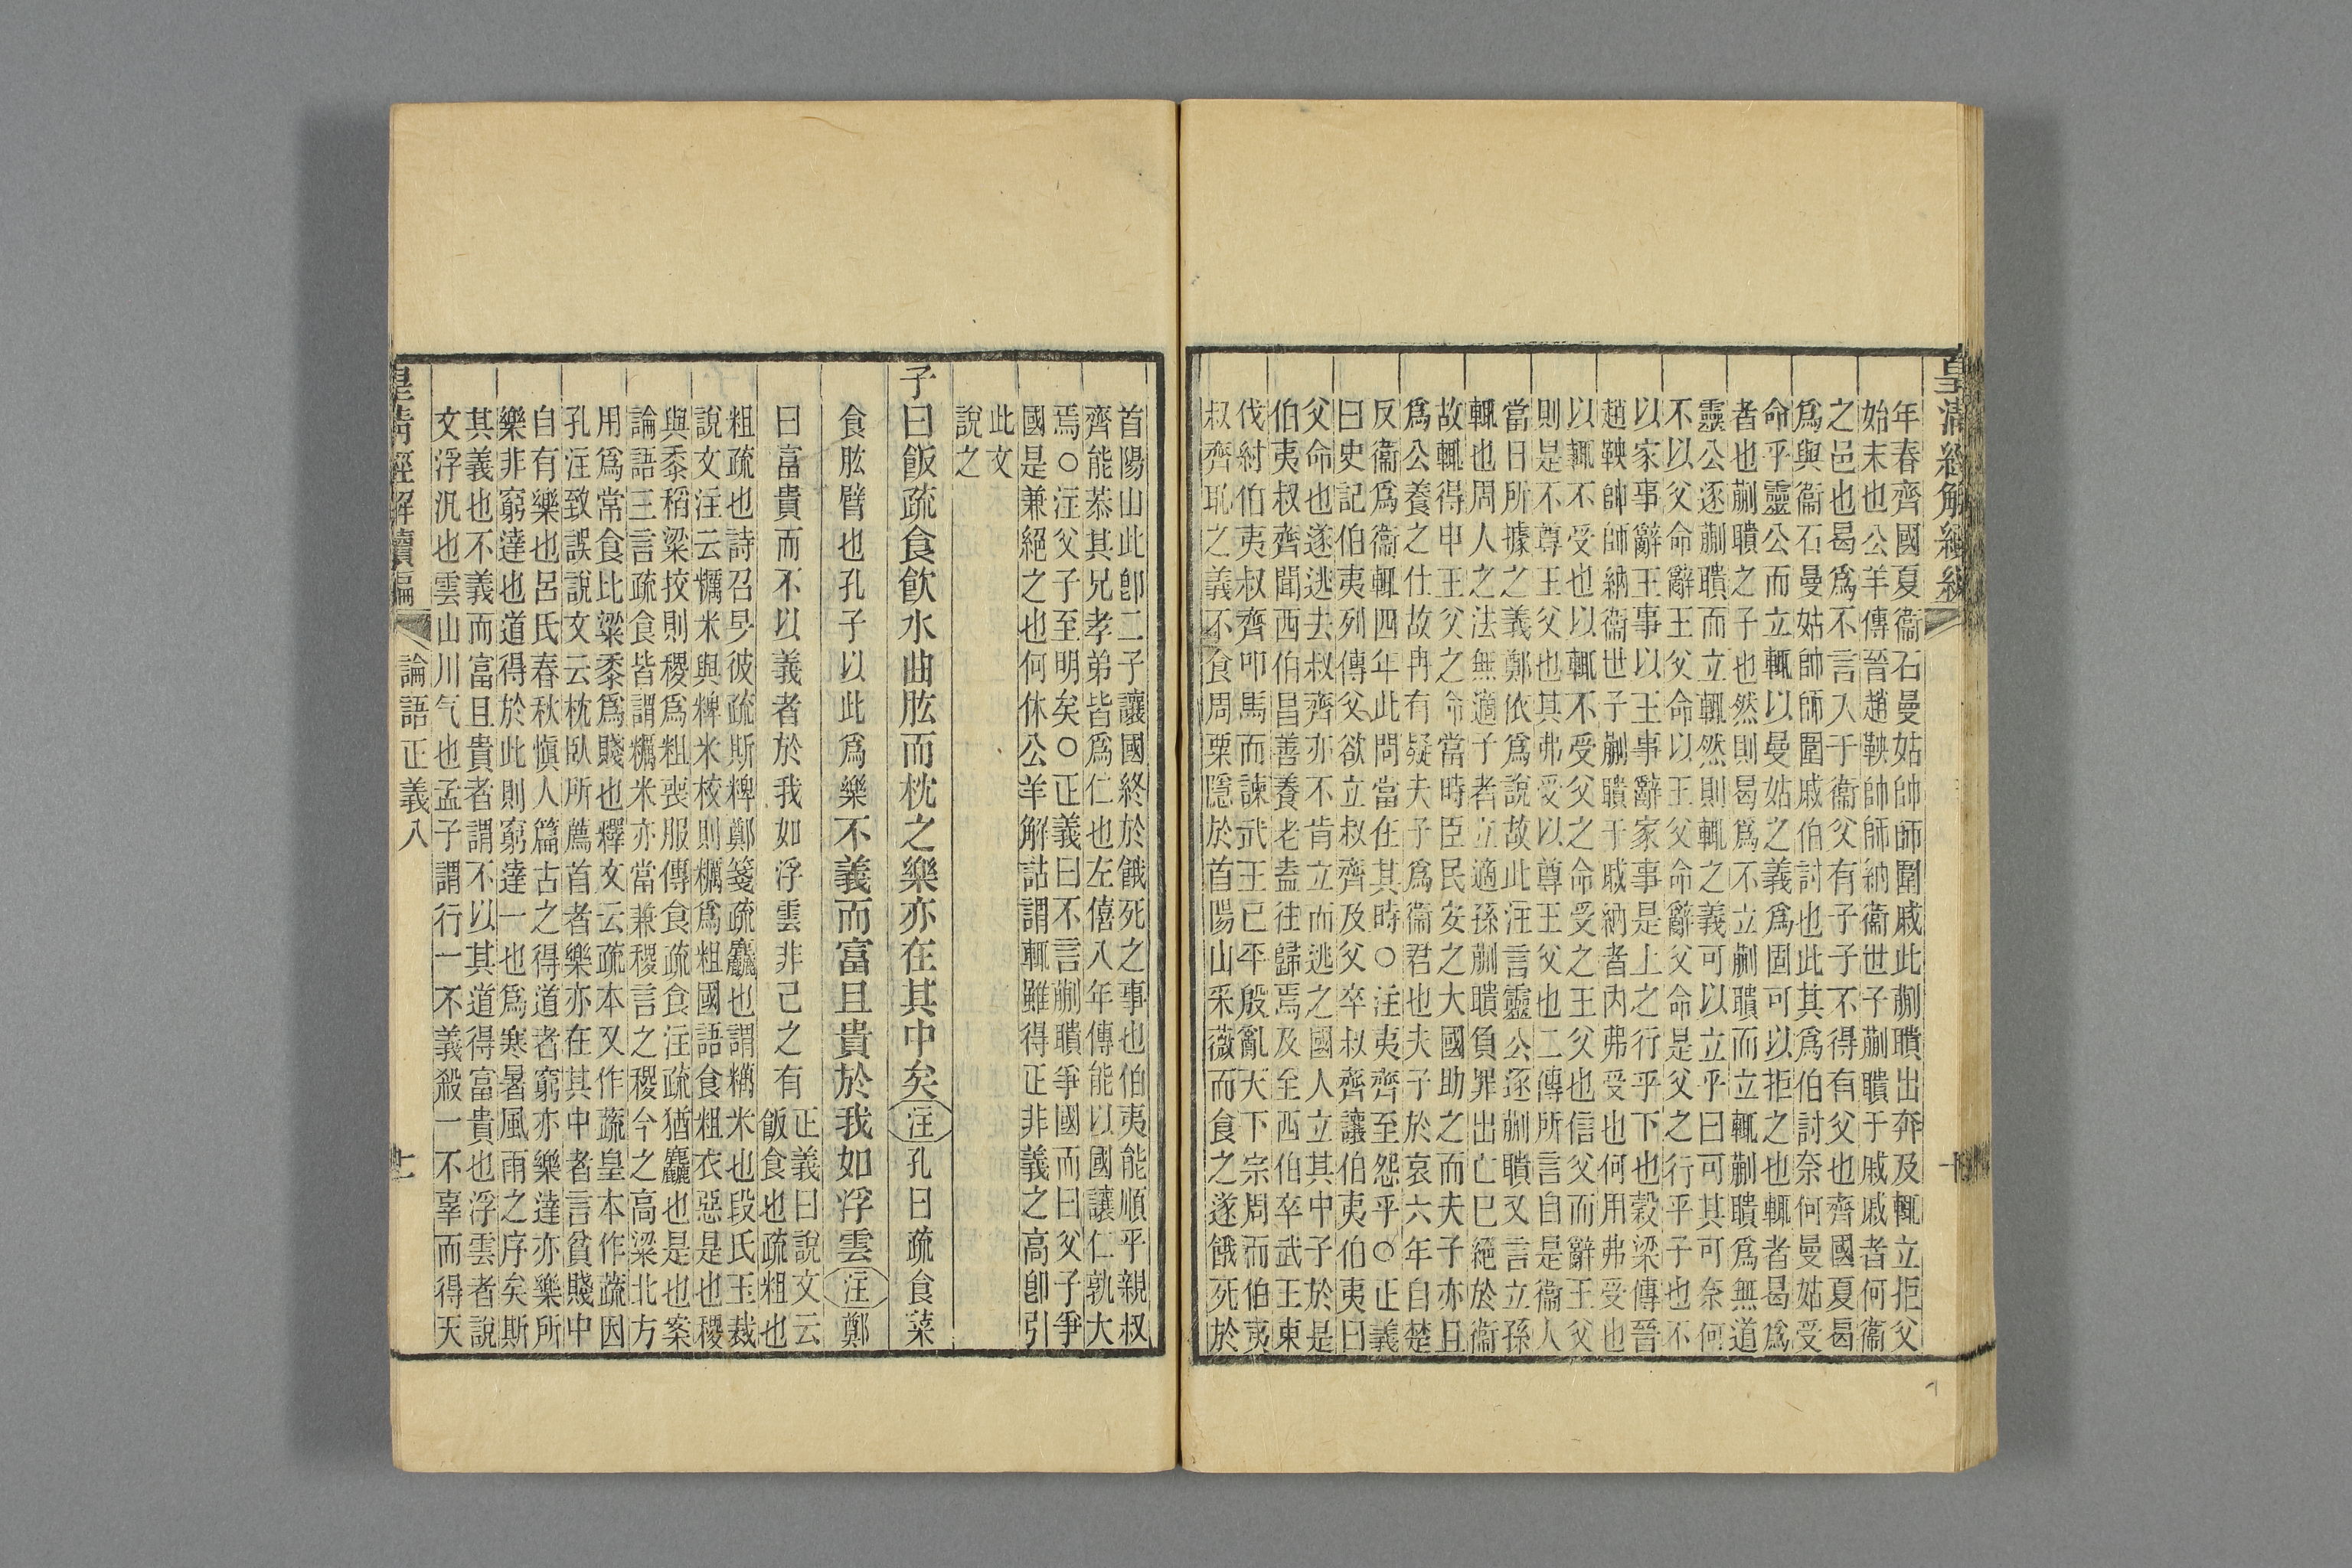 年春齊國夏衞石曼姑帥師圍戚此蒯聵出奔及輒立拒父
始末也公羊傳晉趙鞅帥師納衞世子蒯聵于戚戚者何衞
之邑也曷爲不言入于衞父有子子不得有父也齊國夏曷
爲與衞石曼姑帥師圍戚伯討也此其爲伯討奈何曼姑受
命乎靈公而立輒以曼姑之義爲固可以拒之也輒者曷爲
者也蒯聵之子也然則曷爲不立蒯聵而立輒蒯聵爲無道
靈公逐蒯聵而立輒然則輒之義可以立乎曰可其可奈何
不以父命辭王父命以王父命辭父命是父之行乎子也不
以家事辭王事以王事辭家事是上之行乎下也穀梁傳晉
趙鞅帥師納衞世子蒯聵于戚納者內弗受也何用弗受也
以輒不受也以輒不受父之命受之王父也信父而辭王父
則是不尊王父也其弗受以尊王父也二傳所言自是衞人
當日所據之義鄭依爲說故此注言靈公逐蒯聵又言立孫
輒也周人之法無適子者立適孫蒯聵負罪出亡已絕於衞
故輒得申王父之命當時臣民安之大國助之而夫子亦且
爲公養之仕故冉有疑夫子爲衞君也夫子於哀六年自楚
反衞爲衞輒四年此問當在其時○注夷齊至怨乎○正義
曰史記伯夷列傳父欲立叔齊及父卒叔齊讓伯夷伯夷曰
父命也遂逃去叔齊亦不肯立而逃之國人立其中子於是
伯夷叔齊聞西伯昌善養老盍往歸焉及至西伯卒武王東
伐紂伯夷叔齊叩馬而諫武王已平殷亂天下宗周而伯夷
叔齊恥之義不食周粟隱於首陽山采薇而食之遂餓死於
首陽山此卽二子讓國終於餓死之事也伯夷能順乎親叔
齊能恭其兄孝弟皆爲仁也左僖八年傳能以國讓仁孰大
焉○注父子至明矣○正義曰不言蒯聵爭國而曰父子爭
國是兼絕之也何休公羊解詁謂輒雖得正非義之高卽引
此文
說之
子曰飯疏食飲水曲肱而枕之樂亦在其中矣注孔曰疏食菜
食肱臂也孔子以此爲樂不義而富且貴於我如浮雲注鄭
曰富貴而不以義者於我如浮雲非己之有正義曰說文云
飯食也疏粗也
粗疏也詩召旻彼疏斯粺鄭箋疏麤也謂糲米也段氏玉裁
說文注云糲米與粺米校則糲爲粗國語食粗衣惡是也稷
與黍稻粱挍則稷爲粗喪服傳食疏食注疏猶麤也是也案
論語三言疏食皆謂糲米亦當兼稷言之稷今之高粱北方
用爲常食比粱黍爲賤也釋文云疏本又作蔬皇本作蔬因
孔注致誤說文云枕臥所薦首者樂亦在其中者言貧賤中
自有樂也呂氏春秋愼人篇古之得道者窮亦樂達亦樂所
樂非窮達也道得於此則窮達一也爲寒暑風雨之序矣斯
其義也不義而富且貴者謂不以其道得富貴也浮雲者說
文浮汎也雲山川气也孟子謂行一不義殺一不辜而得天
皇淸經解續編
論語正義八